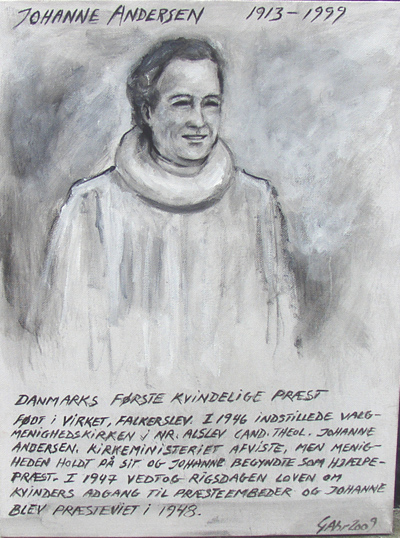 JOHANNE ANDERSEN 1913-1999
DANMARKS FØRSTE KVINDELIGE PRÆST
FØDT i VIRKET, FALKERSLEV. I 1946 INDSTILLEDE VALG-
MENIGHEDSKIRKEN i NR. ALSLEV CAND. THEOL. JOHANNE
ANDERSEN. KIRKEMINISTERIET AFVISTE, MEN MENIG-
HEDEN HOLDT PÅ SIT OG JOHANNE BEGYNDTE SOM HJÆLPE-
PRÆST. I 1947 VEDTOG RIGSDAGEN LOVEN OM
KVINDERS ADGANG TIL PRÆSTEEMBEDER OG JOHANNE
BLEV PRÆSTEVIET I 1948.
2009